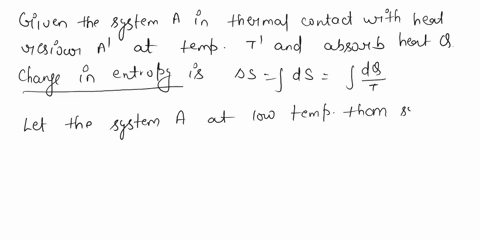 Given the system A in thermal contact with heat
resiour A' at temp. T' and absorb heat Q.
Change in entropy is ΔS = ∫ dS = ∫ dQ/T
Let the system A at low temp. than s